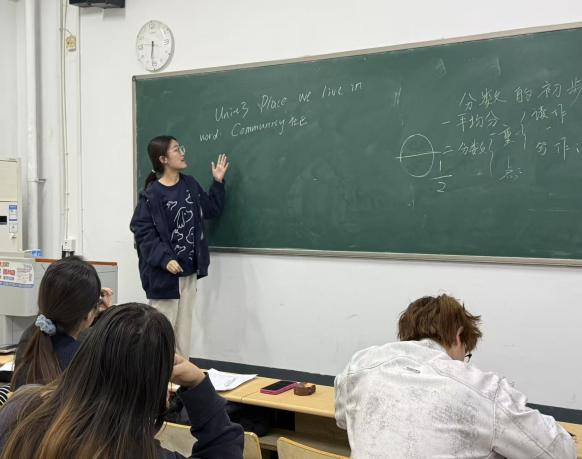 Unit 3 Place we live in
word: Community 社区
分数的初步
一平均分
读作
二分数
写作
1
2